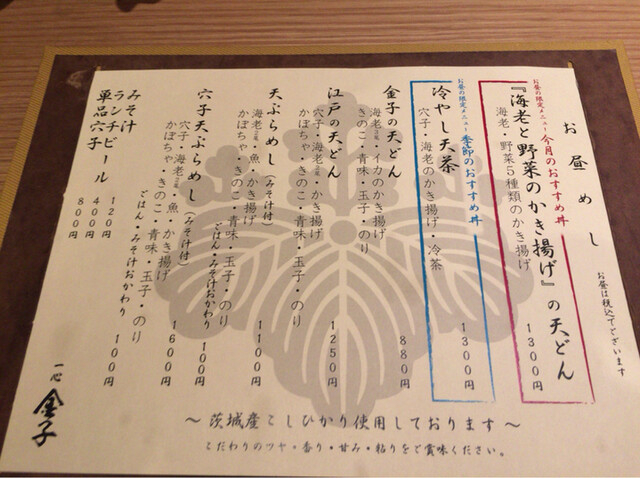 お昼めし
お昼は税込でございます
お昼の限定メニュー 今月のおすすめ丼
『海老と野菜のかき揚げ』の天どん
海老・野菜5種類のかき揚げ
1300円
お昼の限定メニュー 季節のおすすめ丼
冷やし天茶
穴子・海老のかき揚げ・冷茶
1300円
金子の天どん
海老二尾・イカのかき揚げ
きのこ・青味・玉子・のり
880円
江戸の天どん
穴子・海老二尾・かき揚げ
かぼちゃ・きのこ・青味・玉子・のり
1250円
天ぷらめし(みそ汁付)
海老二尾・魚・かき揚げ
かぼちゃ・きのこ・青味・玉子・のり
1100円
ごはん・みそ汁おかわり 100円
穴子天ぷらめし(みそ汁付)
穴子・海老二尾・魚・かき揚げ
かぼちゃ・きのこ・青味・玉子・のり
1600円
ごはん・みそ汁おかわり 100円
みそ汁 120円
ランチビール 400円
単品穴子 800円
一心 金子
〜茨城産こしひかり使用しております〜
こだわりのツヤ・香り・甘み・粘りをご賞味ください。